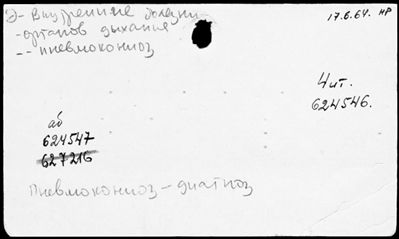 Э - Внутренние болезни -
17.6.64. НР
- органов дыхания
-- пневмокониоз
Чит.
624546.
аб
624547
627216
Пневмокониоз - диагноз